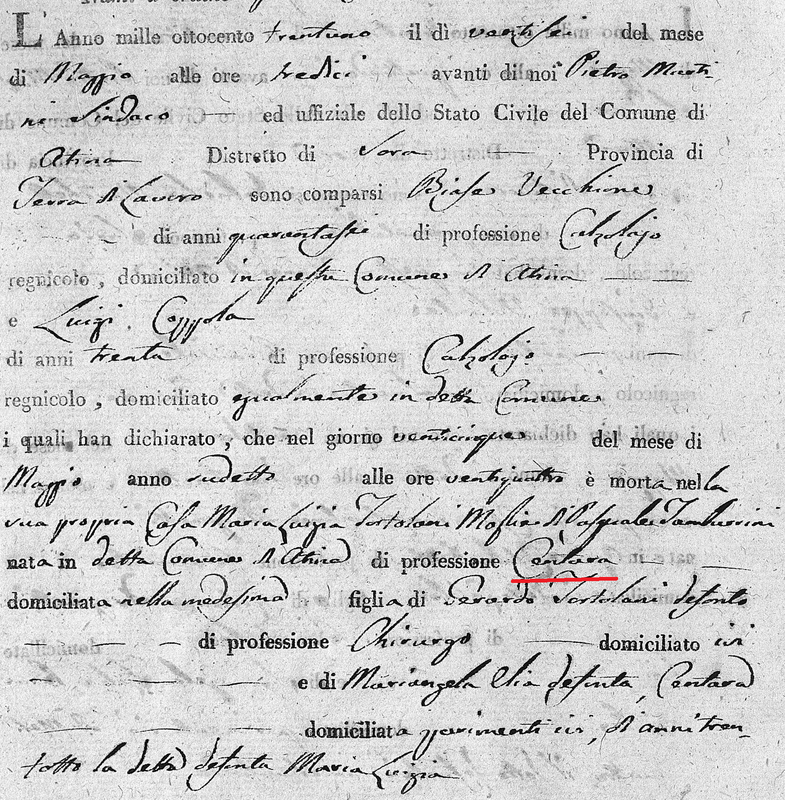 L'Anno mille ottocento trentuno il dì ventisei del mese
di Maggio alle ore tredici avanti di noi Pietro Marti-
ni Sindaco ed uffiziale dello Stato Civile del Comune di
Atina Distretto di Sora Provincia di
Terra di Lavoro sono comparsi Biase Vecchione
di anni quarantasei di professione Calzolajo
regnicolo, domiciliato in questa Comune di Atina
e Luigi Coppola
di anni trenta di professione Calzolajo
regnicolo, domiciliato egualmente in detta Comune
i quali han dichiarato, che nel giorno venticinque del mese di
Maggio anno sudetto alle ore ventiquattro è morta nella
sua propria Casa Maria Luigia Tortolani Moglie di Pasquale Tamburrini
nata in detta Comune di Atina di professione Centara
domiciliata nella medesima figlia di Gerardo Tortolani defonto
di professione Chirurgo domiciliato ivi
e di Mariangela Elia defunta, Centara
domiciliata parimenti ivi, di anni tren-
totto la detta defunta Maria Luigia